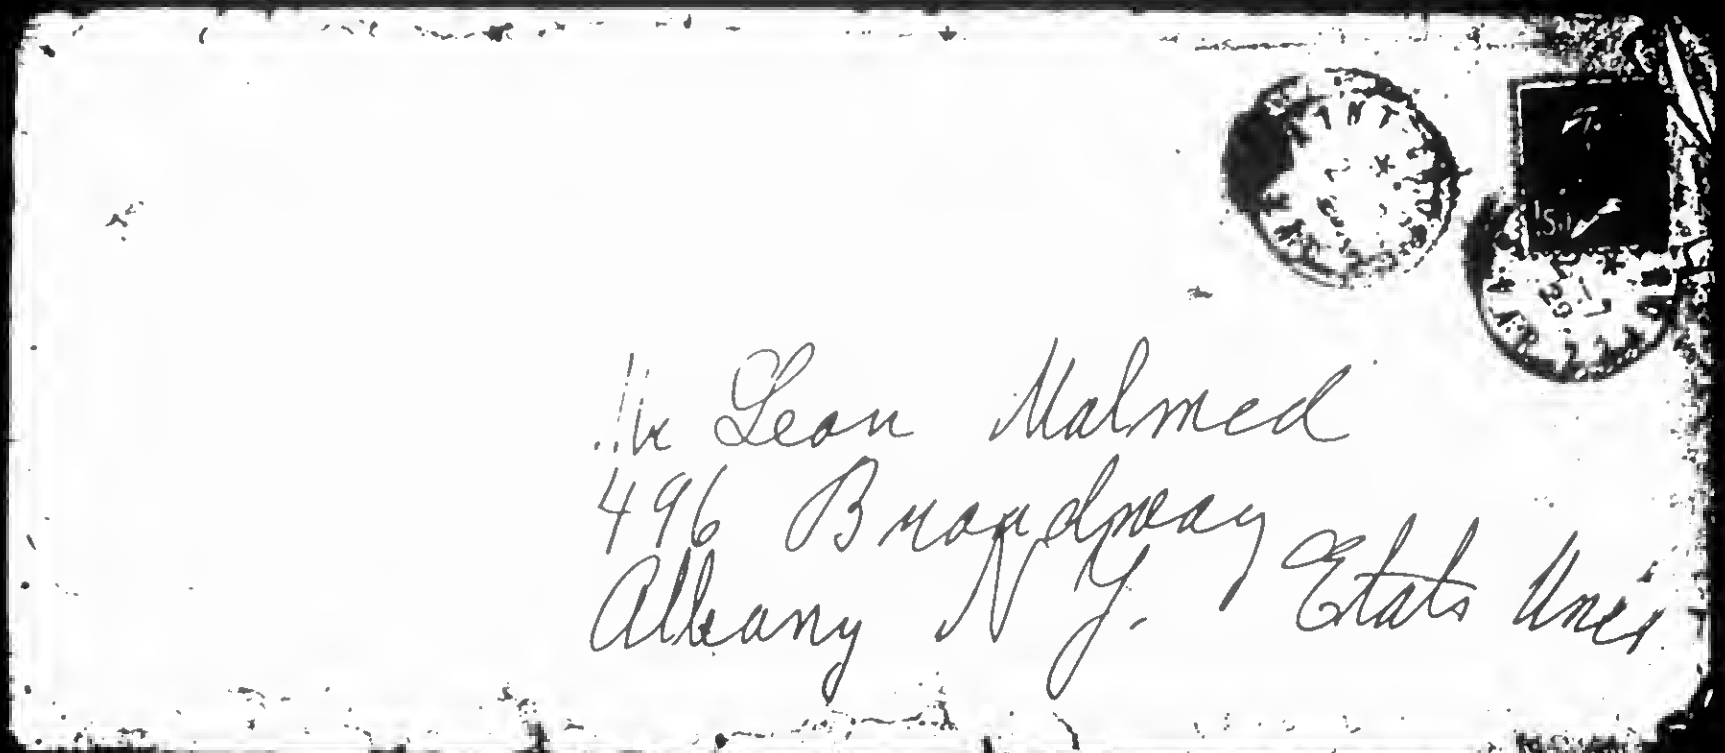 Mr Leon Malmed
496 Broadway
Albany N Y. Etats Unis